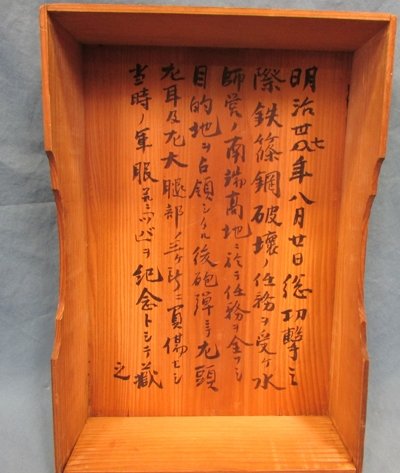 明治卅七年八月廿日総攻撃之
際鉄篠鋼破壊ノ任務ヲ受ケ水
師営ノ南端高地ニ於テ任務ヲ全フシ
目的地ヲ占領シタル後砲弾ニテ左頭
左耳及左大腿部ノ三ヶ所ニ負傷セシ
当時ノ軍服ヲ紀念トシテ蔵
之